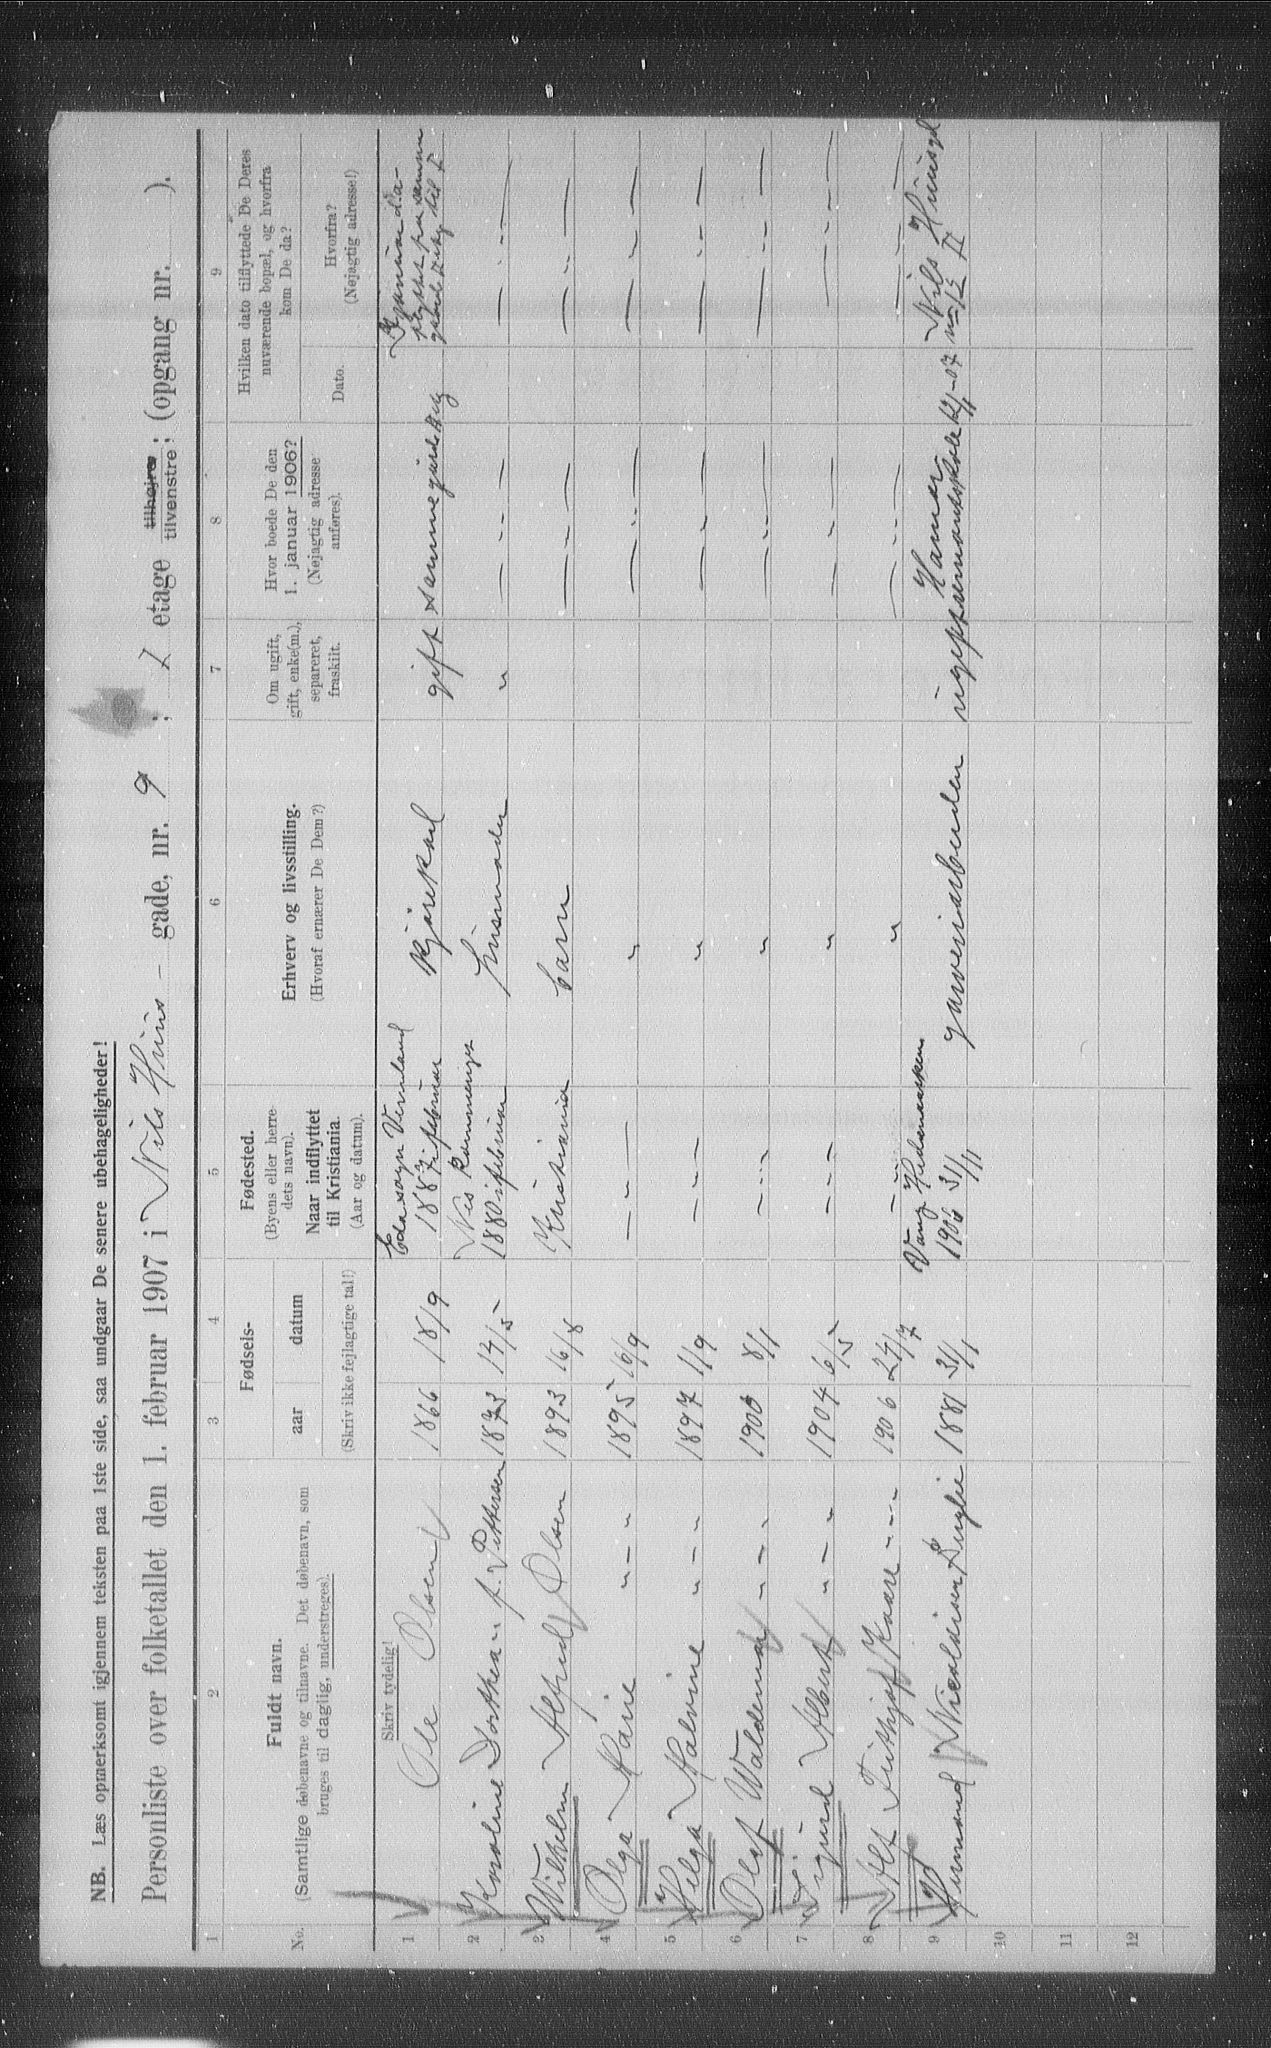 NB. Læs opmerksomt igjennem teksten paa 1ste side, saa undgaar De senere ubehageligheder!
Personliste over folketallet den 1. februar 1907 i Nils Huus - gade, nr. 9 ; I etage tilhøjre tilvenstre; (opgang nr. ).
1 2 3 4 5 6 7 8 9
No.
Fuldt navn.
(Samtlige døbenavne og tilnavne. Det døbenavn, som
bruges til daglig, understreges).
Fødsels-
aar datum
(Skriv ikke fejlagtige tal!)
Fødested.
(Byens eller herre-
dets navn).
Naar indflyttet
til Kristiania.
(Aar og datum).
Erhverv og livsstilling.
(Hvoraf ernærer De Dem?)
Om ugift,
gift, enke(m.),
separeret,
fraskilt.
Hvor boede De den
1. januar 1906?
(Nøjagtig adresse
anføres).
Hvilken dato tilflyttede De Deres
nuværende bopæl, og hvorfra
kom De da?
Dato.
Hvorfra?
(Nøjagtig adresse!)
Skriv tydelig!
1 Ole Olsen 1866 18/9 Eda sogn Vermland 1887 februar kjørekarl gift samme gaard
2 Karoline Dorthea f. Pettersen 1873 14/5 Nes 1880 februar husmoder "
3 Wilhelm Alfred Olsen 1893 16/8 Kristiania barn — " — — " —
4 Olga Marie " - " 1895 16/9 — " — " — " — — " —
5 Helga Halvine " - " 1897 1/9 - " - " — " — — " —
6 Olaf Waldemar " - " 1900 8/1 - " - " — " — — " —
7 Sigurd Albert " - " 1904 6/5 - " - " — " — — " —
8 Alf Frithjof Kaare - " - 1906 24/7 - " - " — " — — " —
9 Hermand Nicolaisen 1881 31/1 Vang Hedemarken 1906 31/1 garveriarbeider ugift Hamar Nils Huusgd no 13 II
10
11
12